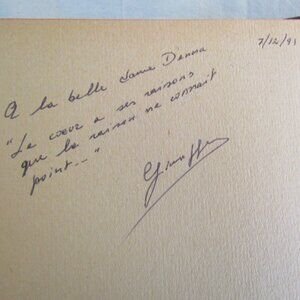 7/12/91
A la belle dame D'emma
"Le coeur a ses raisons
que la raison ne connait
point..."